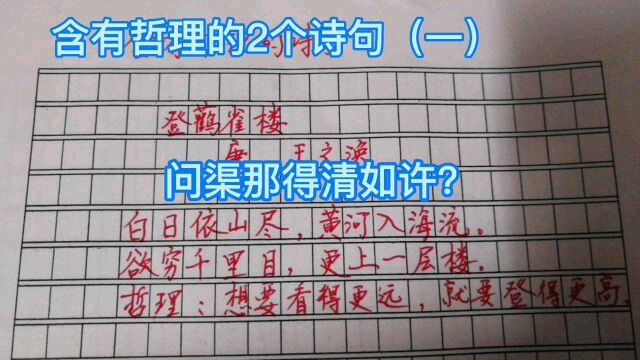 含有哲理的2个诗句（一）
登鹳雀楼
唐 王之涣
问渠那得清如许？
白日依山尽，黄河入海流。
欲穷千里目，更上一层楼。
哲理：想要看得更远，就要登得更高